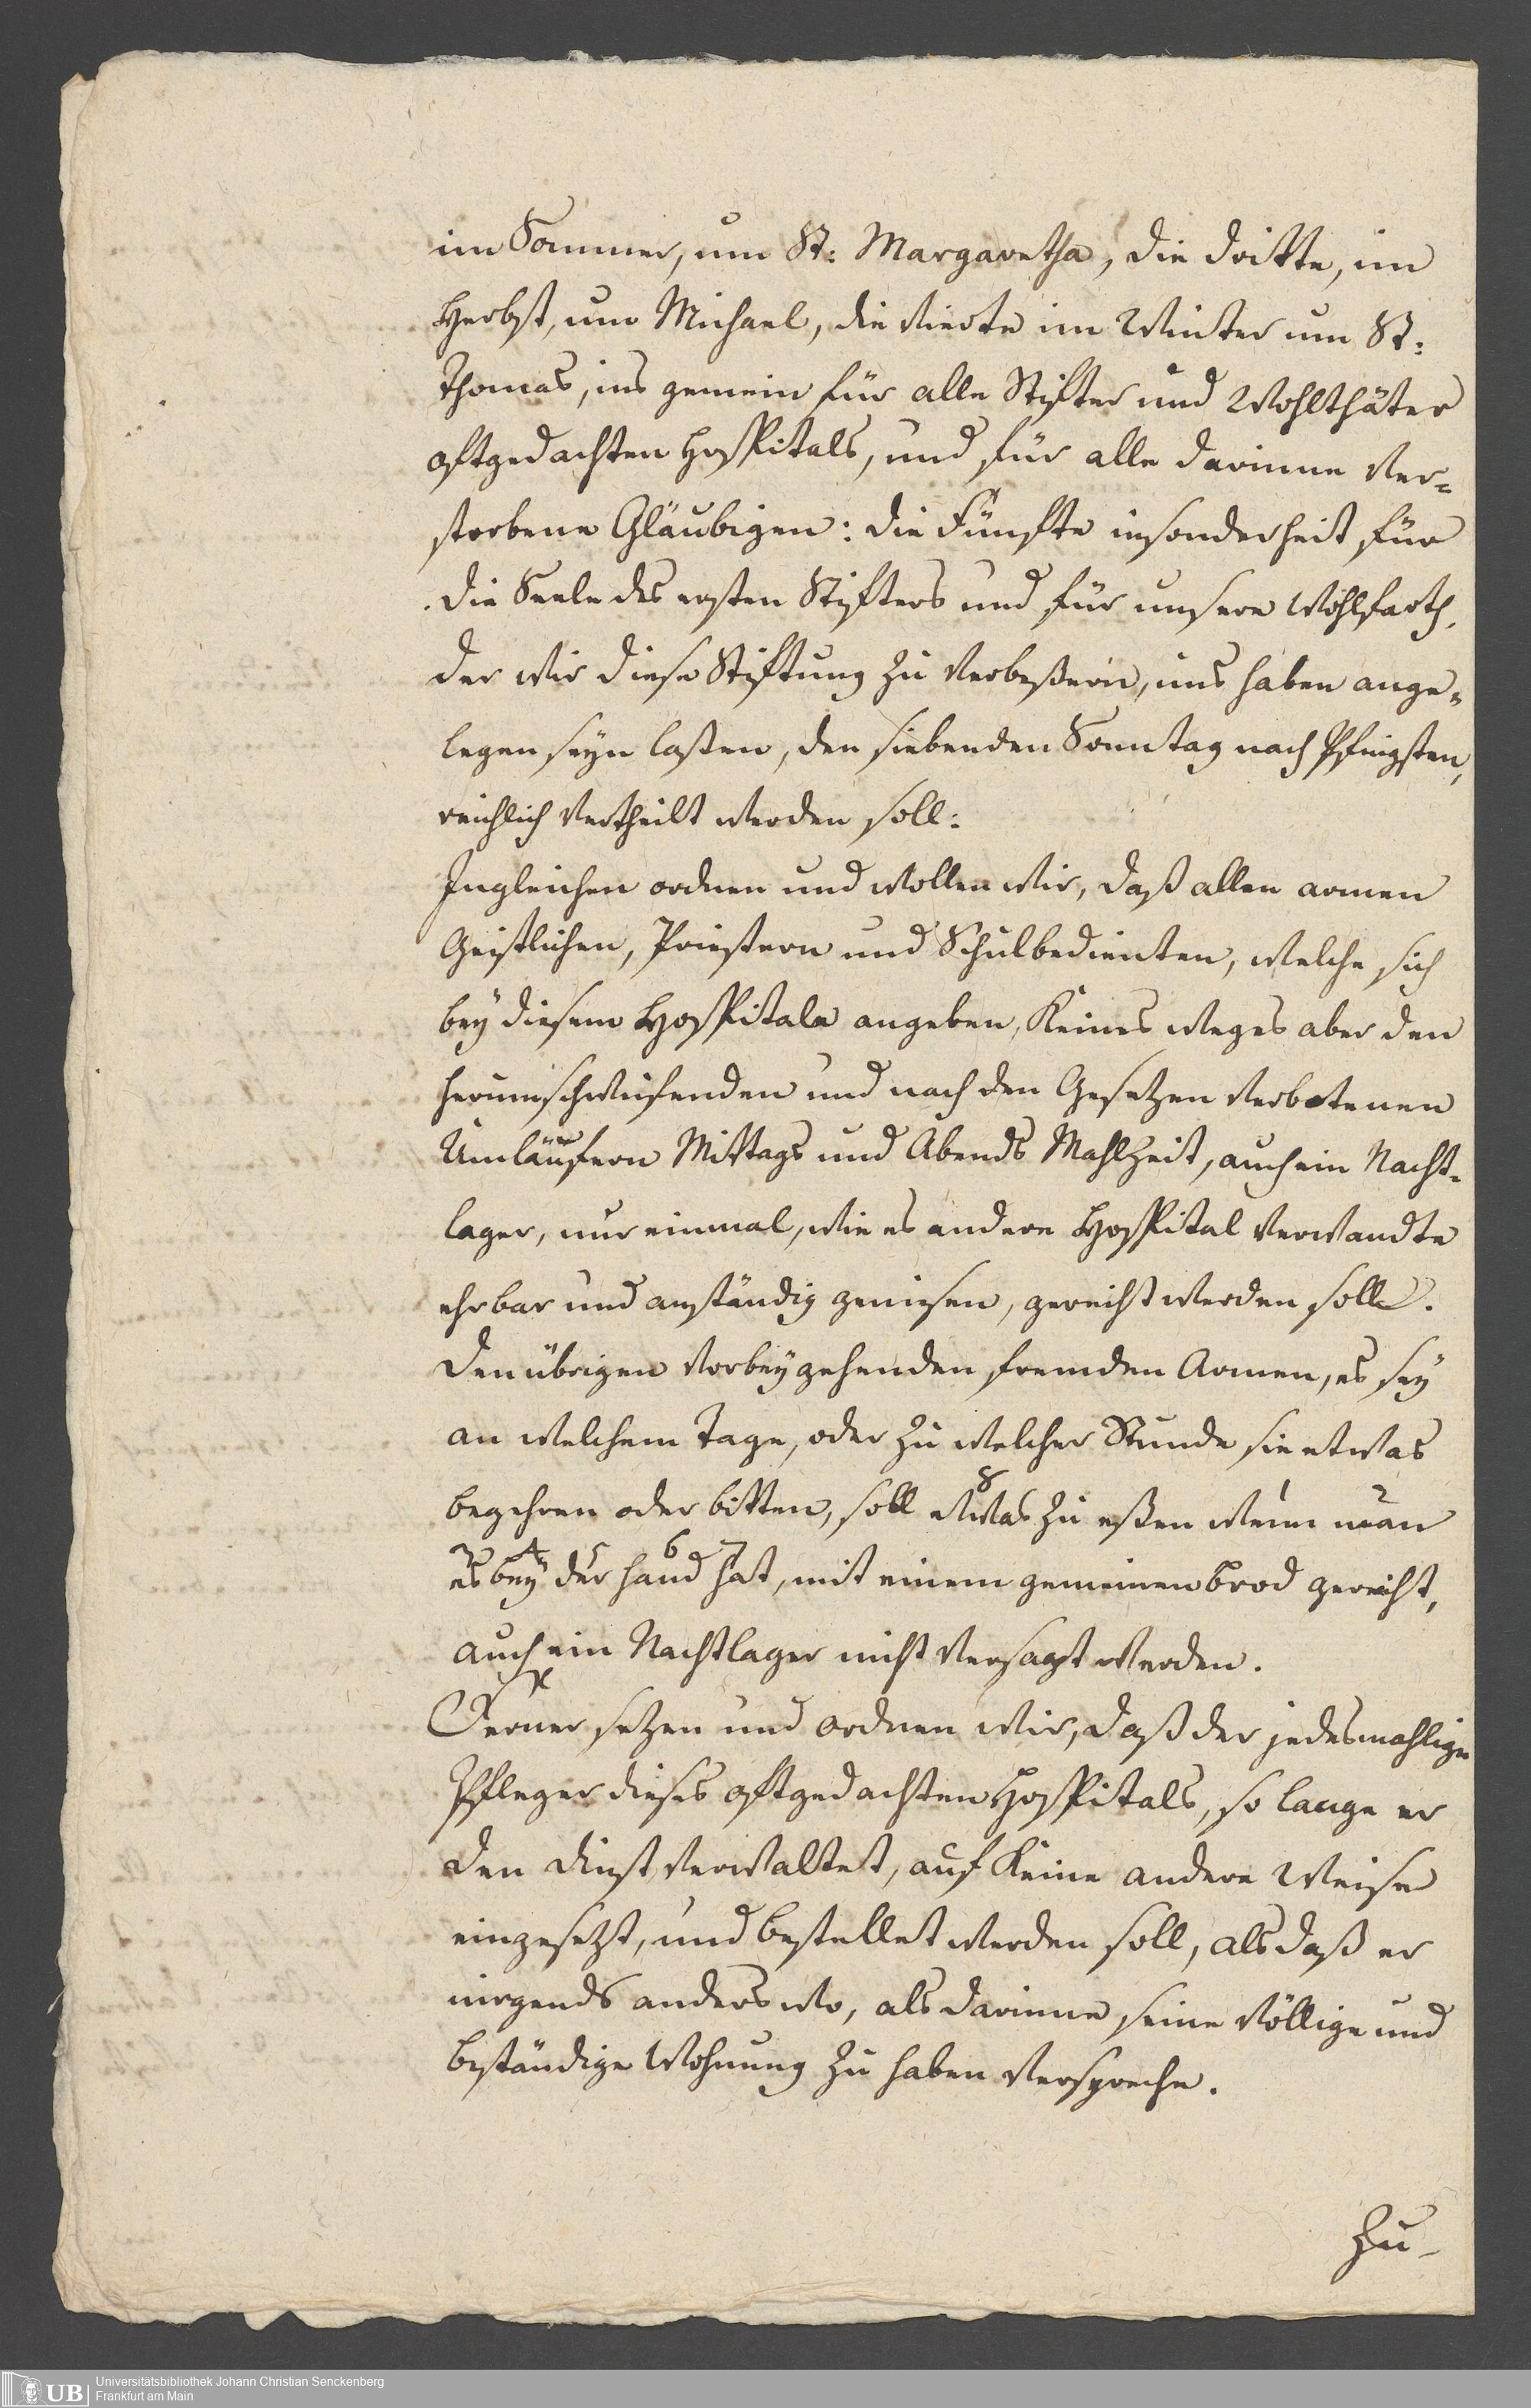 im Sommer, um St: Margaretha, die dritte, im
Herbst, um Michael, die vierte im Winter um St:
Thomas, ins gemein für alle Stifter und Wohlthäter
oftgedachten Hospitals, und für alle darinne ver=
storbene Gläubigen: die Fünfte insonderheit für
die Seele des ersten Stifters und für unsere Wohlfarth,
der wir diese Stiftung zu verbeßern, uns haben ange=
legen seyn laßen, den siebenden Sonntag nach Pfingsten,
reichlich vertheilt werden soll:
Ingleichen ordnen und wollen wir, daß allen armen
Geistlichen, Priestern und Schulbedienten, welche sich
bey diesem Hospitale angeben, keines weges aber den
herumschweifenden und nach den Gesetzen verbotenen
Umläufern Mittags und Abends Mahlzeit, auch ein Nacht-
lager, nur einmal, wie es andere Hospital verwandte
ehrbar und anständig geniesen, gereicht werden solle.
Den übrigen vorbeygehenden fremden Armen, es sey
an welchem Tage, oder zu welcher Stunde sie etwas
begehren oder bitten, soll etwas zu eßen wenn man
es bey der Hand hat, mit einem gemeinen Brod gereicht,
auch ein Nachtlager nicht versagt werden.
Ferner setzen und ordnen wir, daß der jedesmahlige
Pfleger dieses oftgedachten Hospitals, so lange er
den Dinst verwaltet, auf keine andere Weise
eingesetzt, und bestellet werden soll, als daß er
nirgends anders wo, als darinne seine völlige und
beständige Wohnung zu haben verspreche.
Zu-
UB Universitätsbibliothek Johann Christian Senckenberg
Frankfurt am Main